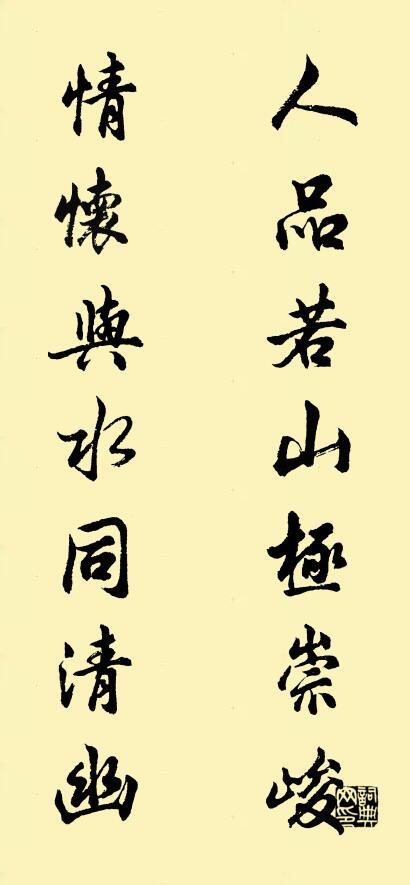 人品若山極崇峻
情懷與水同清幽
詞典網印